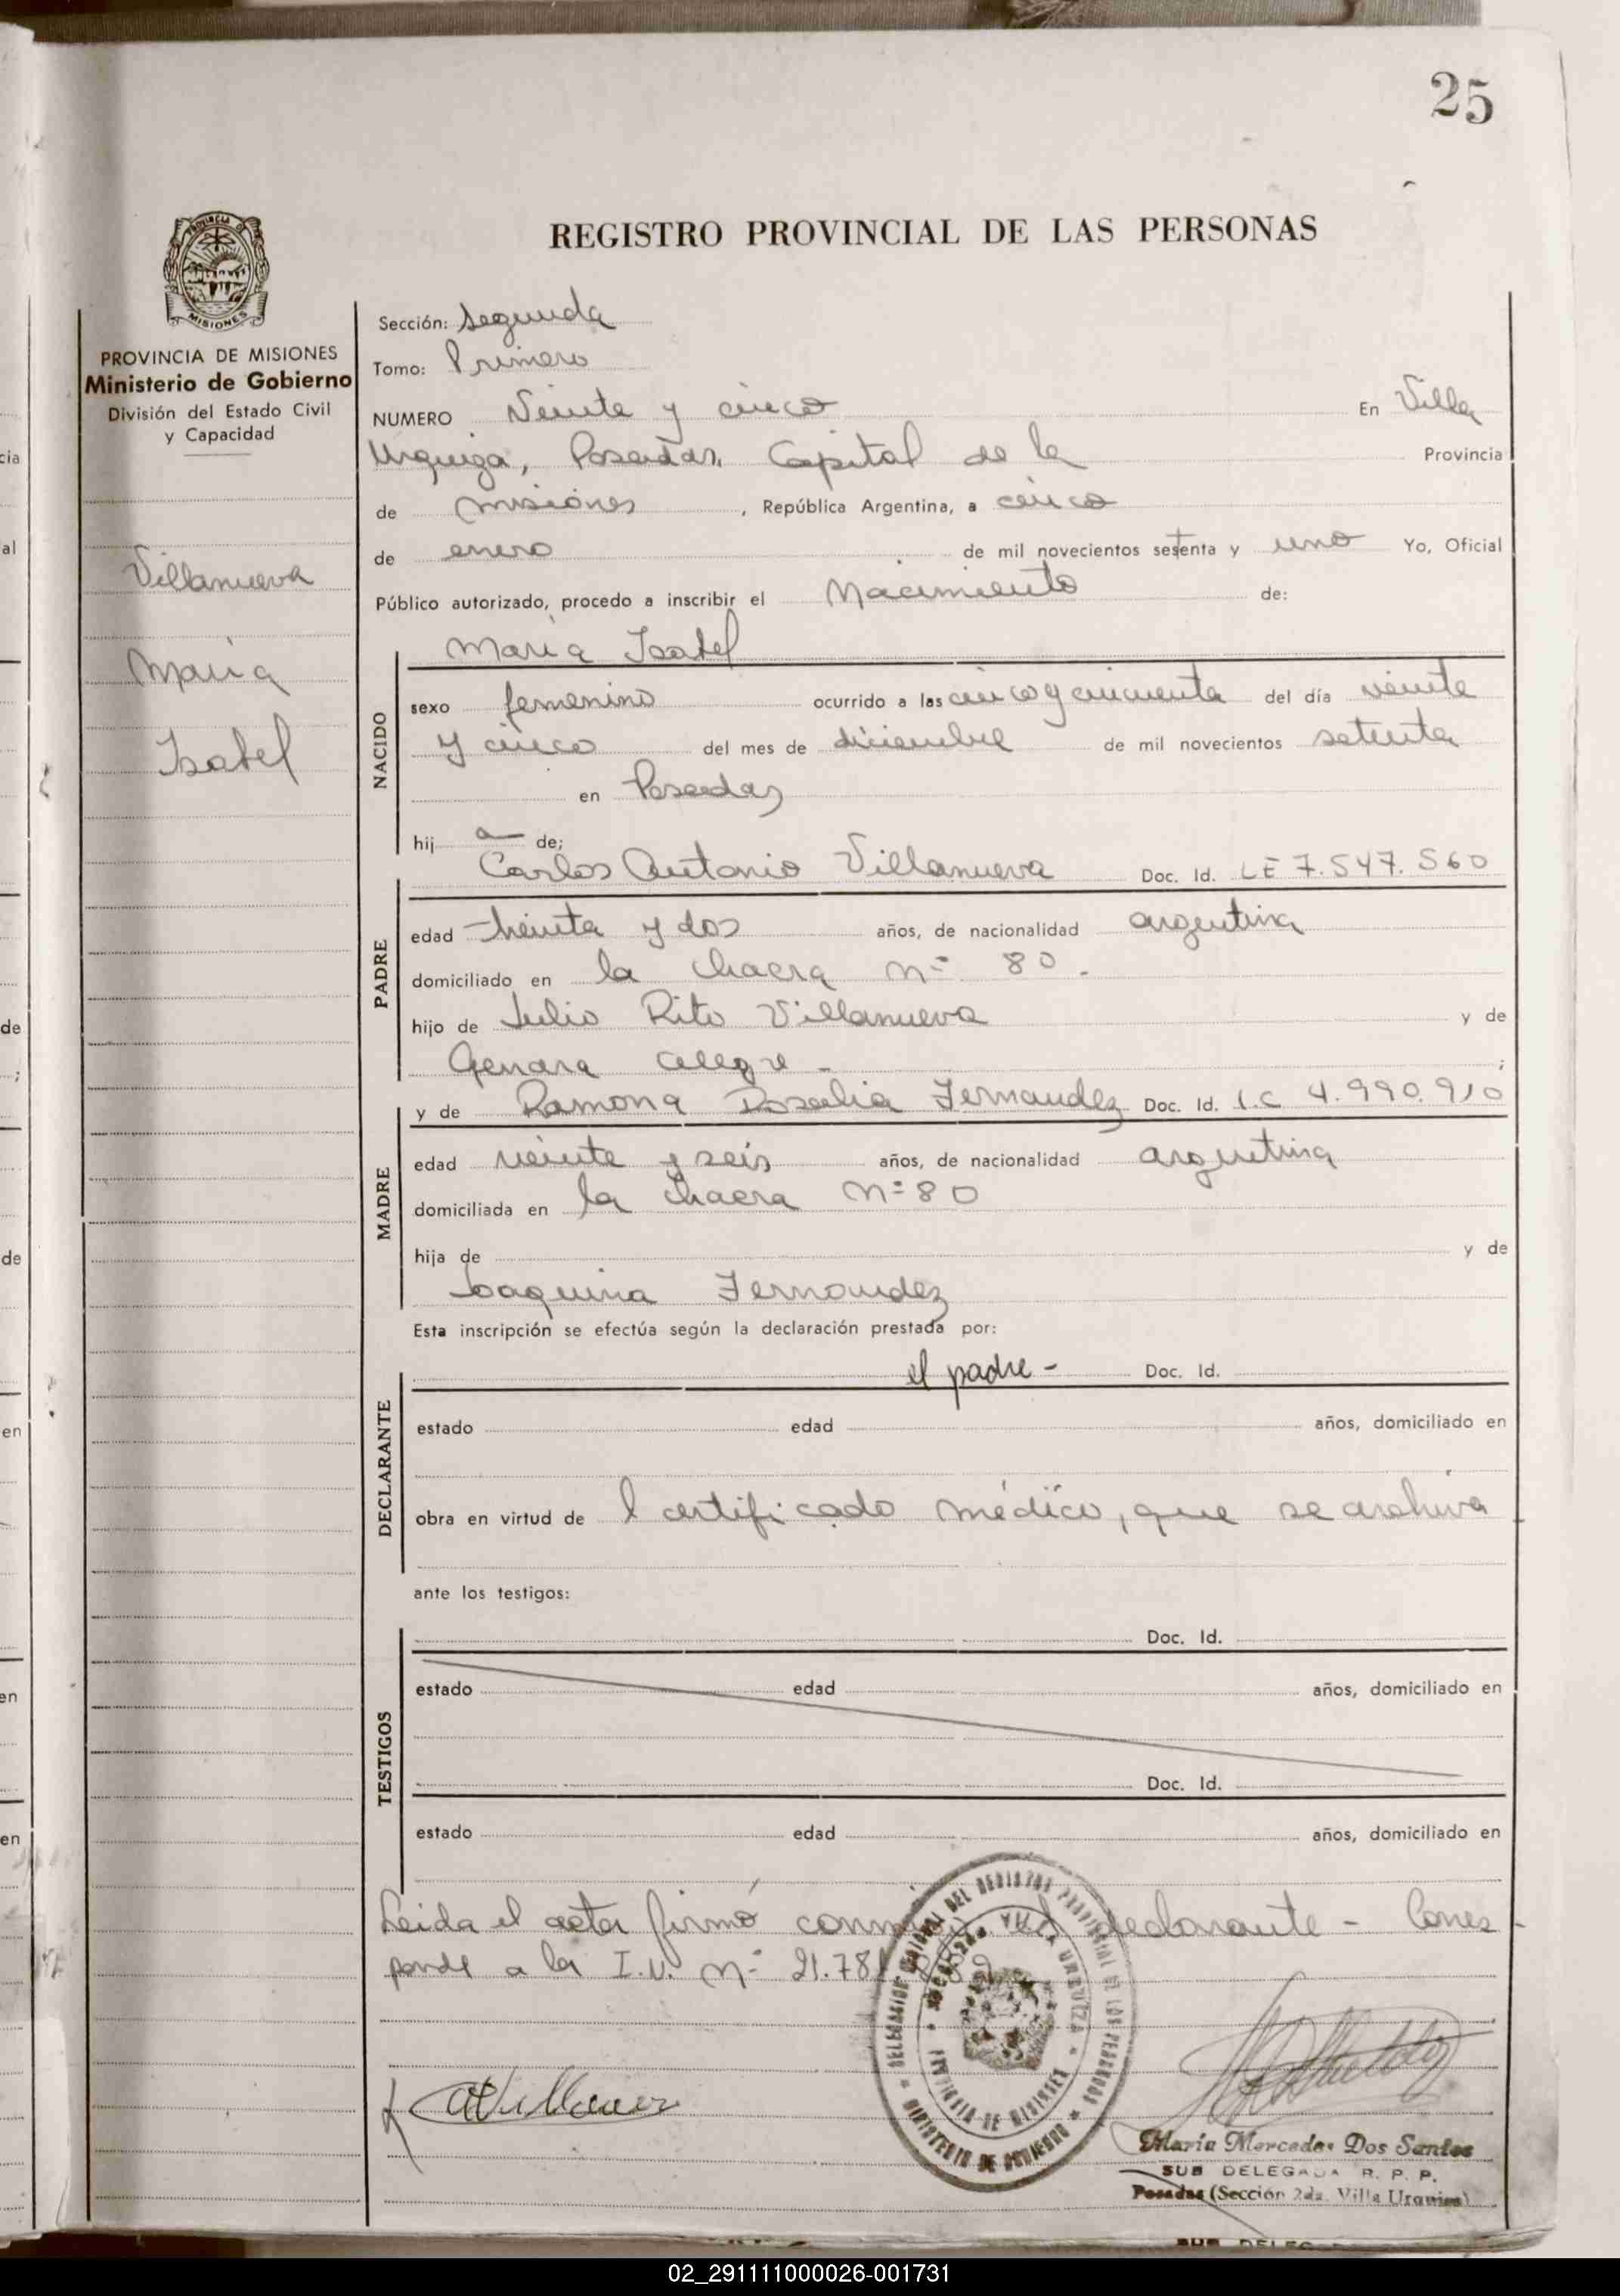 25
REGISTRO PROVINCIAL DE LAS PERSONAS
MISIONES
PROVINCIA DE MISIONES
Ministerio de Gobierno
División del Estado Civil
y Capacidad
Villanueva
Maria
Isabel
Sección: Segunda
Tomo: Primero
NUMERO Veinte y cinco En Villa
Urquiza, Posadas, Capital de la Provincia
de misiones, República Argentina, a cinco
de enero de mil novecientos setenta y uno Yo, Oficial
Público autorizado, procedo a inscribir el Nacimiento de:
NACIDO
María Isabel
sexo femenino ocurrido a las cinco y cincuenta del día veinte
y cinco del mes de diciembre de mil novecientos setenta
en Posadas
hij a de;
PADRE
Carlos Antonio Villanueva Doc. Id. LE 7.547.560
edad treinta y dos años, de nacionalidad argentina
domiciliado en la chacra nº 80.
hijo de Julio Rito Villanueva y de
Genara Alegre - ;
MADRE
y de Ramona Rosalia Fernandez Doc. Id. L.C 4.990.910
edad veinte y seis años, de nacionalidad argentina
domiciliada en la chacra nº 80
hija de y de
Joaquina Fernandez
Esta inscripción se efectúa según la declaración prestada por:
DECLARANTE
el padre - Doc. Id.
estado edad años, domiciliado en
obra en virtud de l certificado médico, que se archiva
ante los testigos:
TESTIGOS
Doc. Id.
estado edad años, domiciliado en
Doc. Id.
estado edad años, domiciliado en
Leida el acta firmó conmigo el declarante - Corres-
ponde a la I.U. nº 21.781
DELEGACION DEL REGISTRO PROVINCIAL DE LAS PERSONAS
VILLA URQUIZA
PROVINCIA DE MISIONES
MINISTERIO DE GOBIERNO
María Mercedes Dos Santos
SUB DELEGADA R. P. P.
Posadas (Sección 2da. Villa Urquiza)
02_291111000026-001731